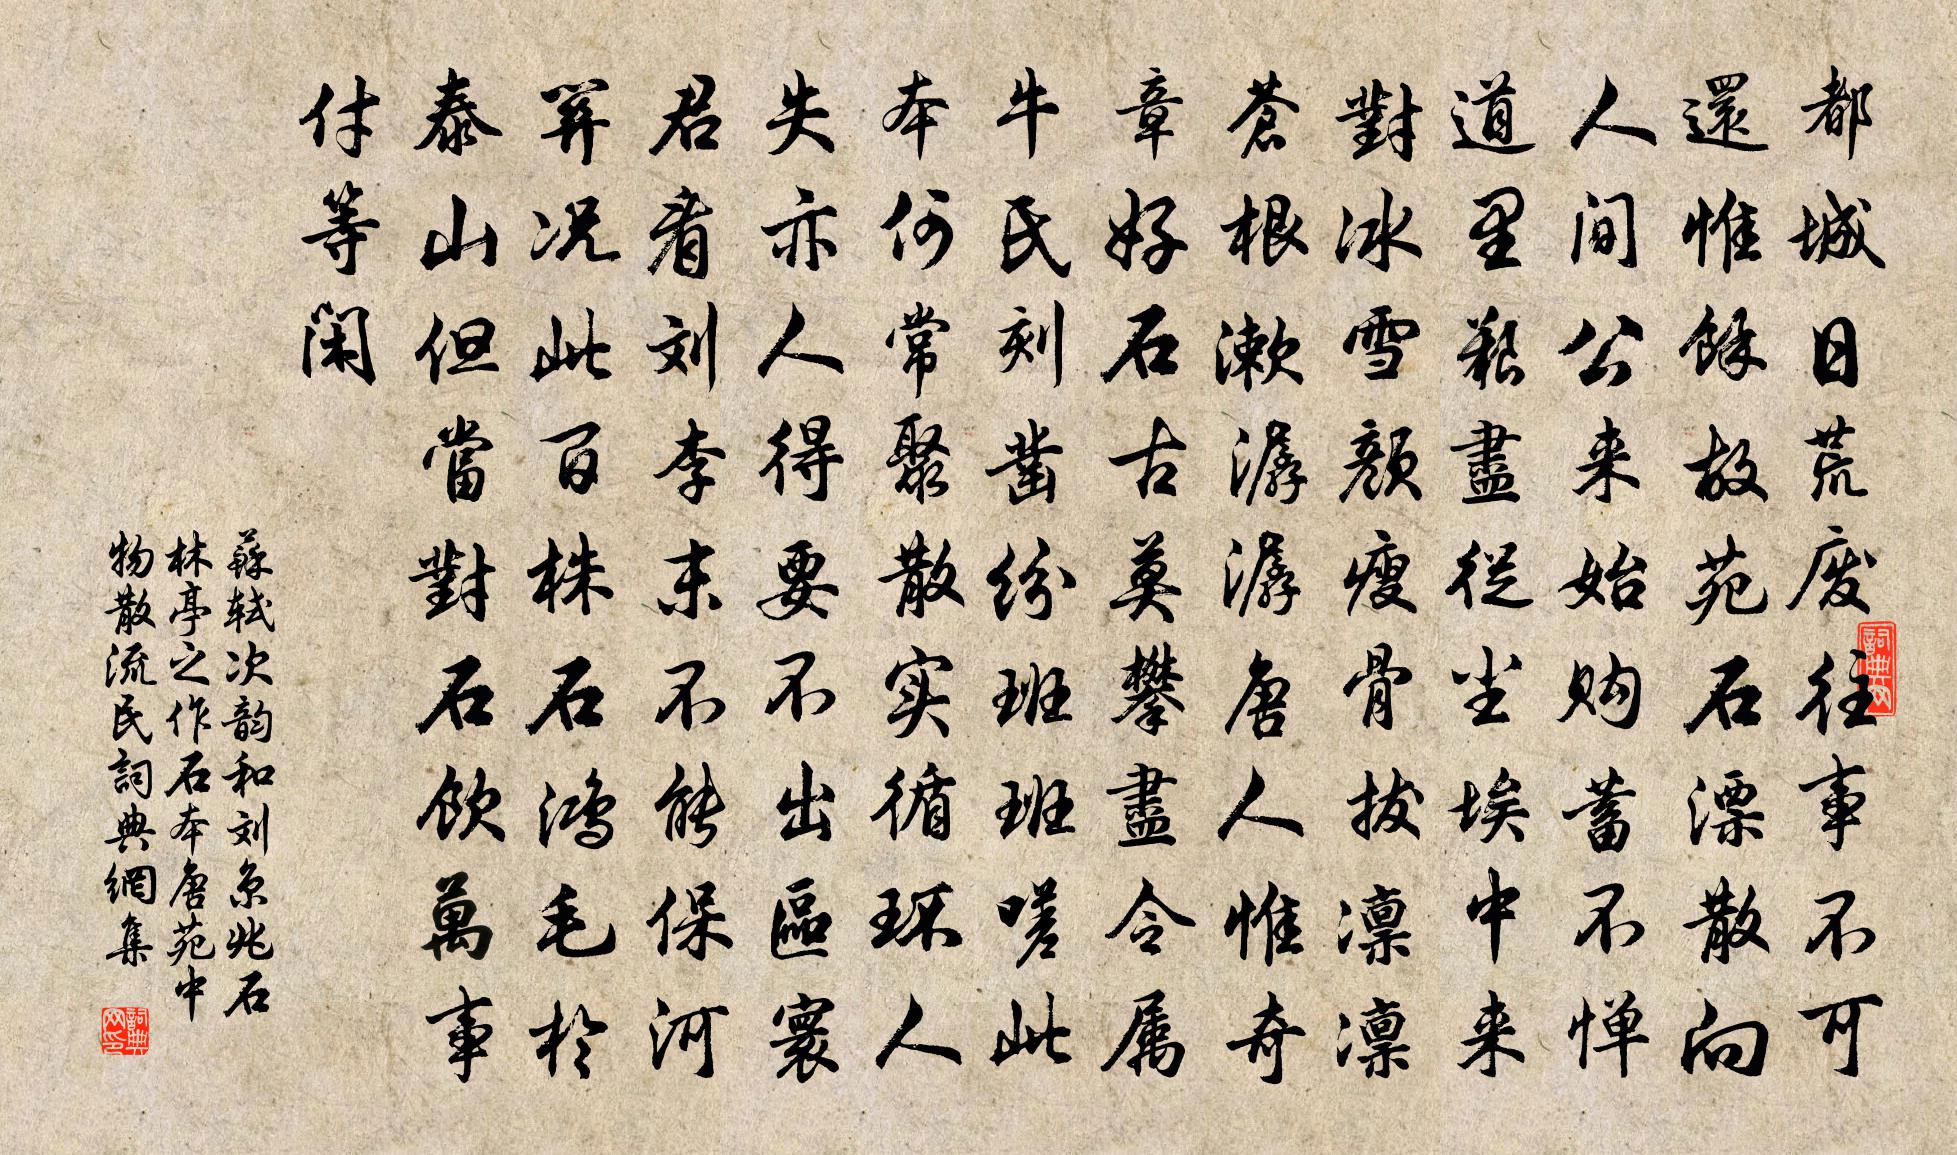 都城日荒废往事不可
還惟餘故苑石漂散向
人间公来始购蓄不惮
道里艱盡從尘埃中来
對冰雪颜瘦骨拔凛凛
蒼根漱潺潺唐人惟奇
章好石古莫攀盡令属
牛氏刻凿纷班班嗟此
本何常聚散实循环人
失亦人得要不出區寰
君看刘李末不能保河
関况此百株石鸿毛於
泰山但當對石飲萬事
付等闲
蘇轼次韵和刘京兆石
林亭之作石本唐苑中
物散流民詞典網集
詞典网
詞典网印